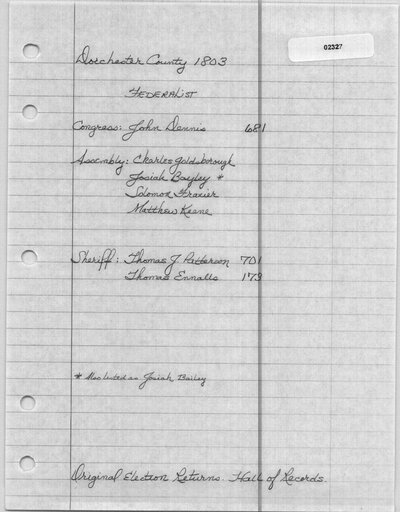 02327
Dorchester County 1803
FEDERALIST
Congress: John Dennis 681
Assembly: Charles Goldsborough
Josiah Bayley *
Solomon Frazier
Matthew Keene
Sheriff: Thomas J. Patterson 701
Thomas Ennalls 173
* Also listed as Josiah Bailey
Original Election Returns. Hall of Records